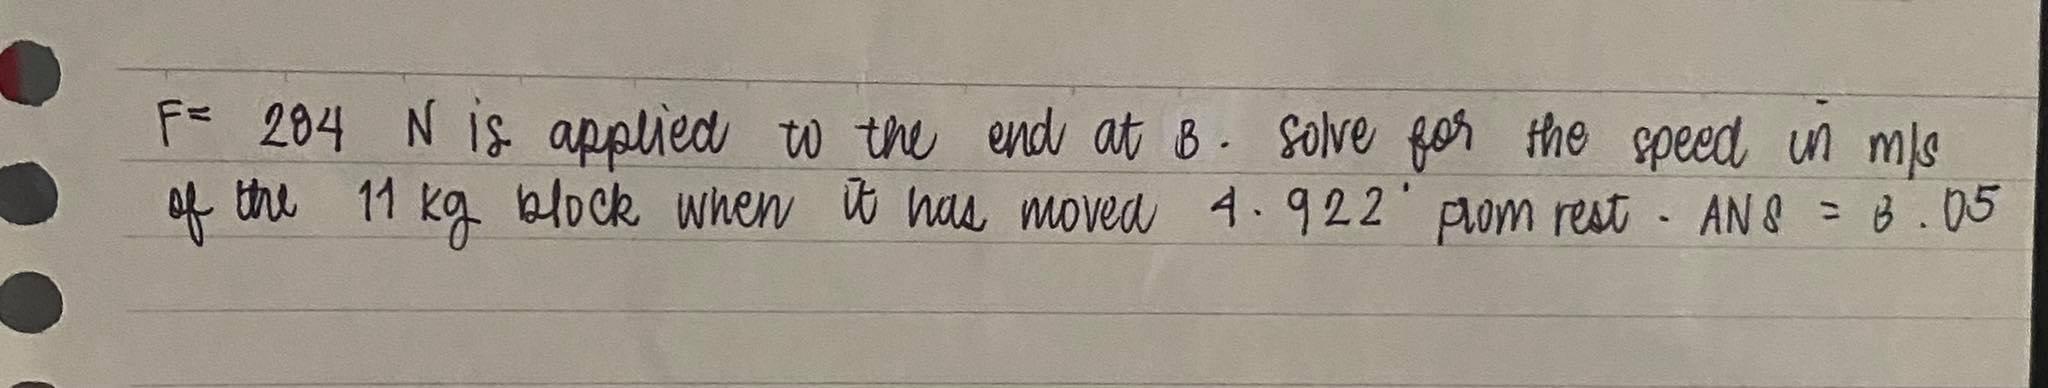 F= 284 N is applied to the end at B. solve for the speed in m/s
of the 11 kg block when it has moved 4.922' from rest. ANS = 3.05